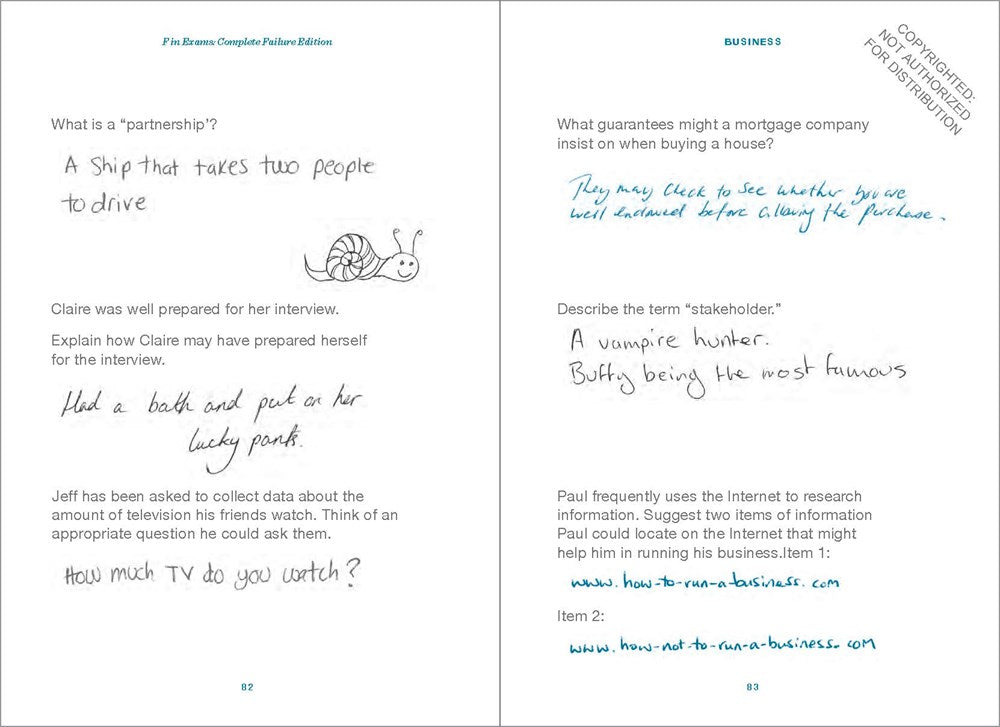 F in Exams: Complete Failure Edition
What is a “partnership’?
A Ship that takes two people
to drive
Claire was well prepared for her interview.
Explain how Claire may have prepared herself
for the interview.
Had a bath and put on her
lucky pants.
Jeff has been asked to collect data about the
amount of television his friends watch. Think of an
appropriate question he could ask them.
How much TV do you watch?
82
BUSINESS
COPYRIGHTED:
NOT AUTHORIZED
FOR DISTRIBUTION
What guarantees might a mortgage company
insist on when buying a house?
They may check to see whether you are
well endowed before allowing the purchase.
Describe the term “stakeholder.”
A vampire hunter.
Buffy being the most famous
Paul frequently uses the Internet to research
information. Suggest two items of information
Paul could locate on the Internet that might
help him in running his business.Item 1:
www.how-to-run-a-business.com
Item 2:
www.how-not-to-run-a-business.com
83